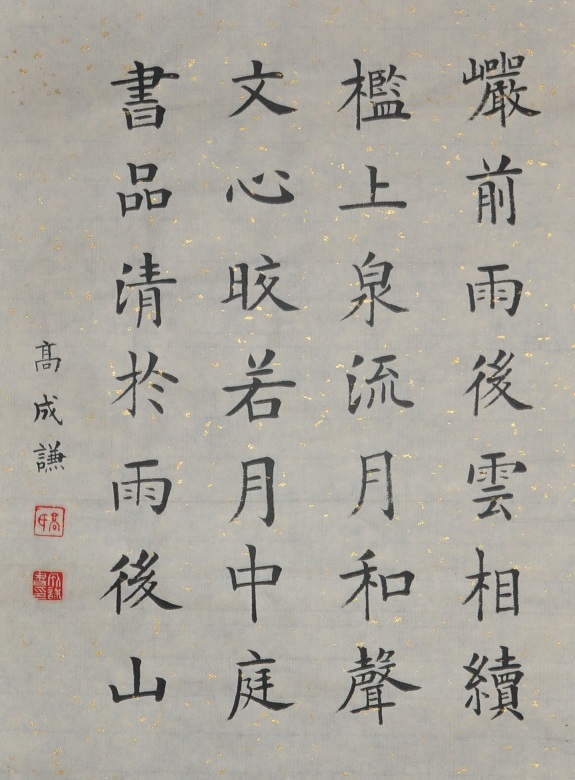 巖前雨後雲相續
檻上泉流月和聲
文心皎若月中庭
書品清於雨後山
髙成謙
高氏
成謙書印